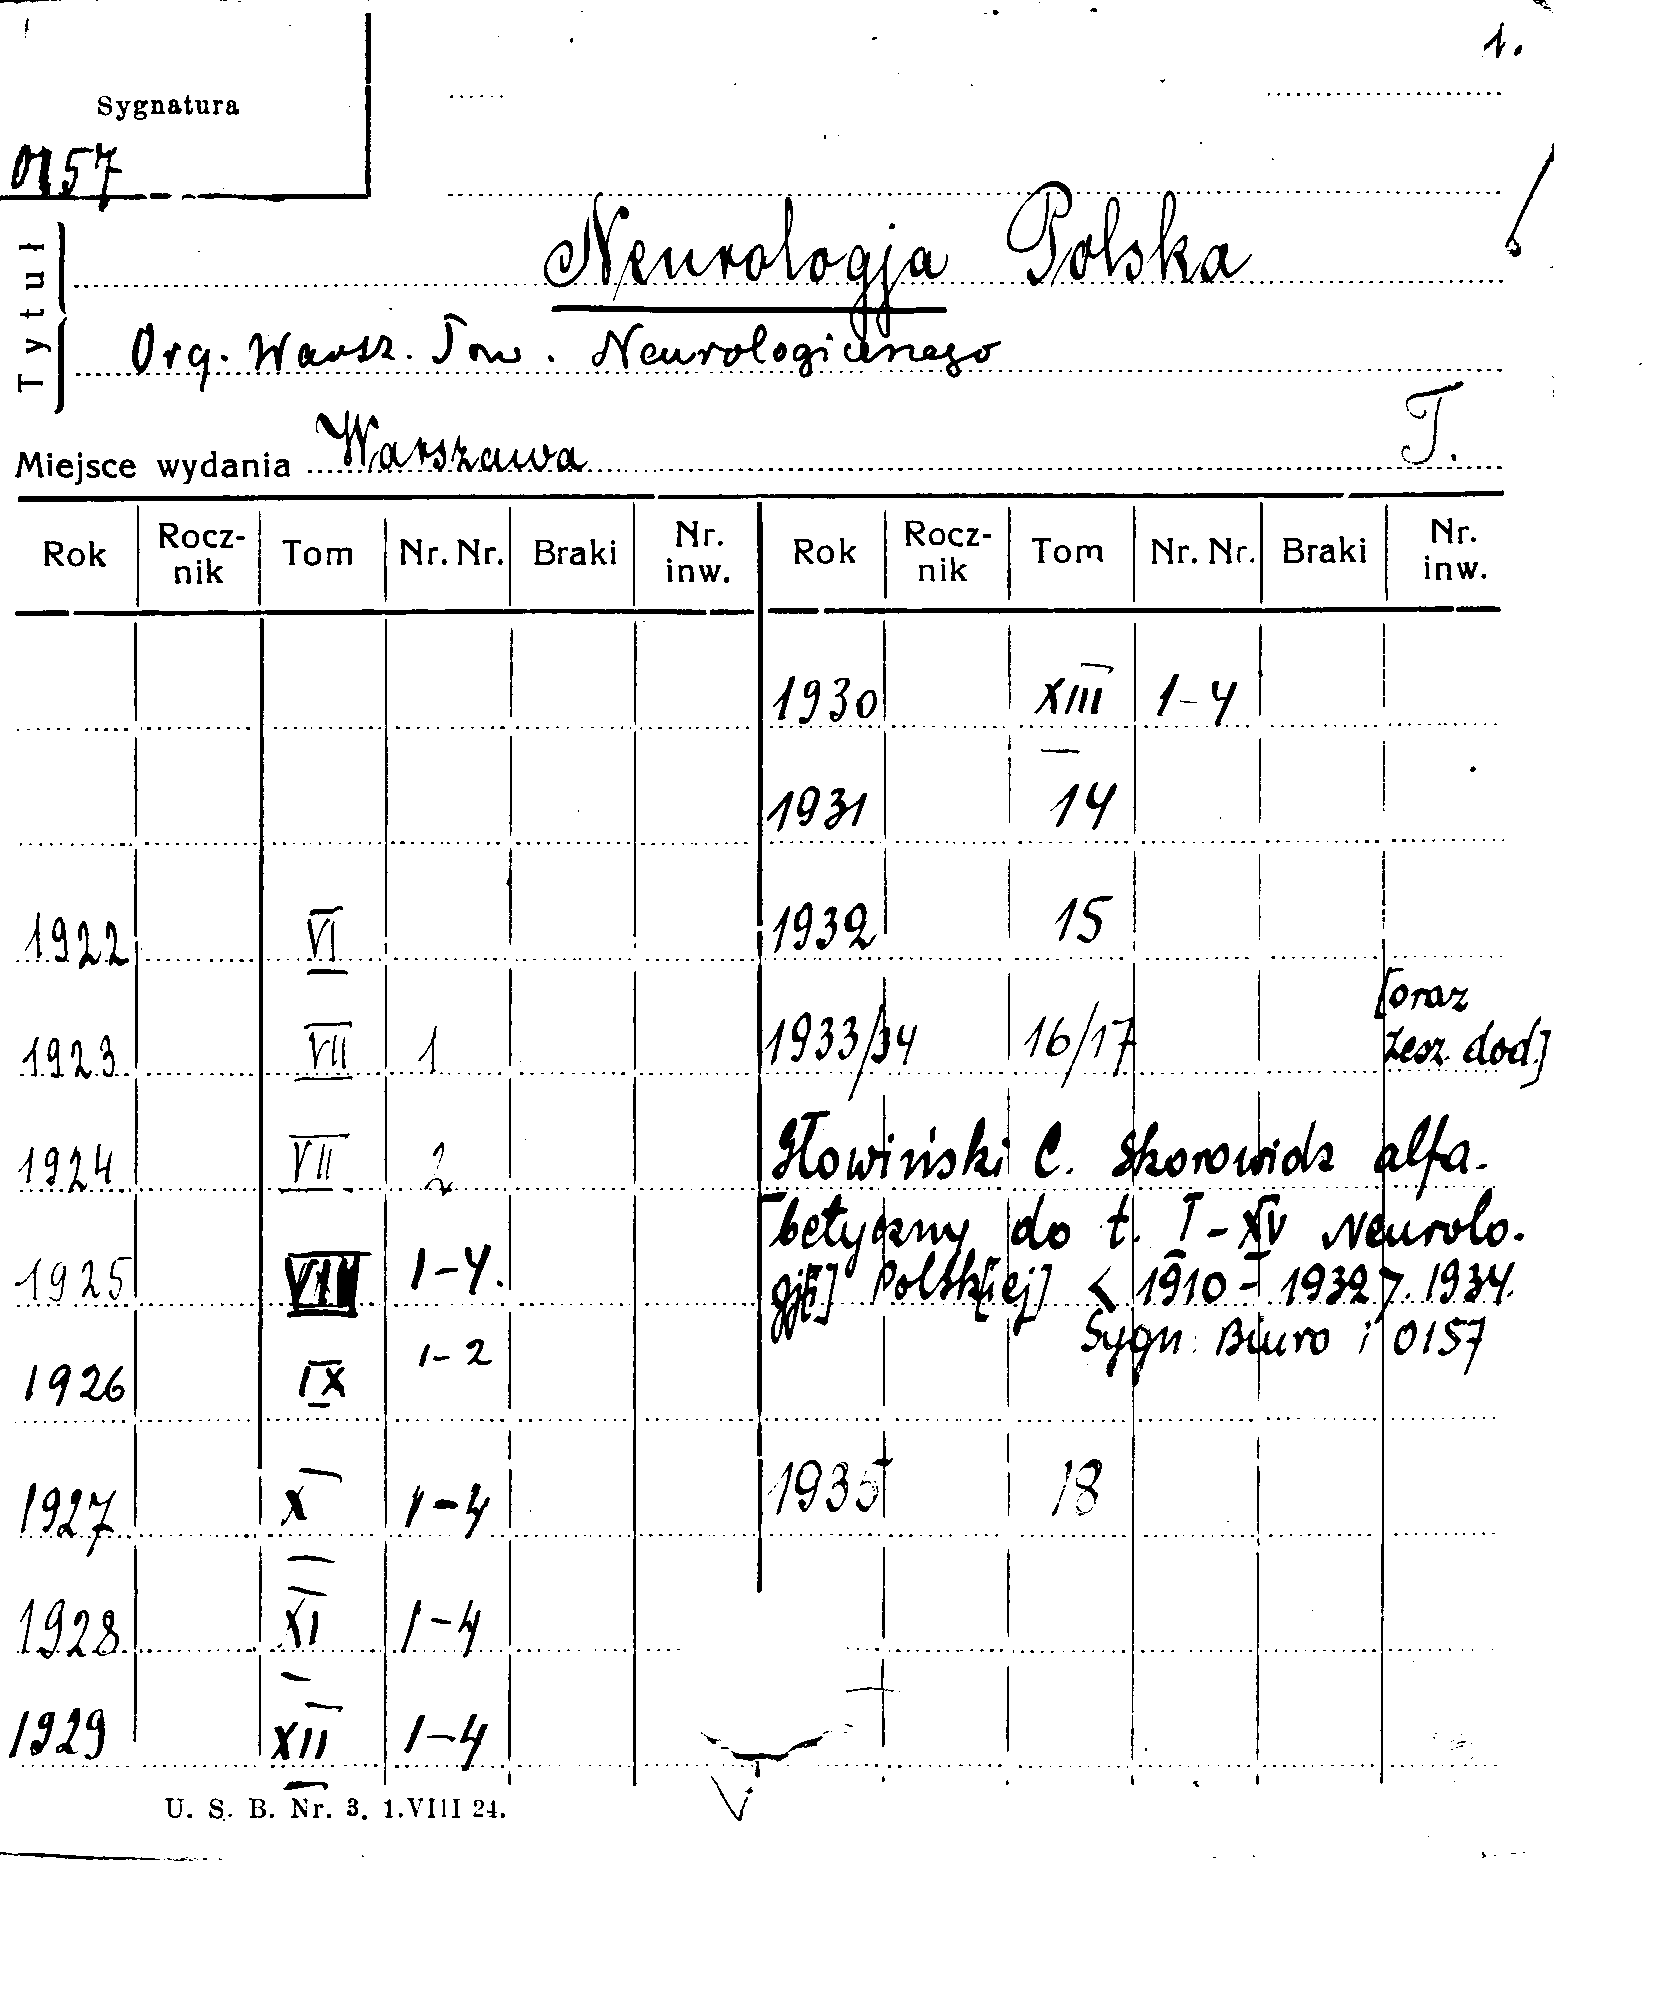 1.
Sygnatura
0157
Tytuł
Neurologja Polska
Org. Warsz. Tow. Neurologicznego
Miejsce wydania Warszawa T.
Rok Rocz-nik Tom Nr. Nr. Braki Nr. inw. Rok Rocz-nik Tom Nr. Nr. Braki Nr. inw.
1930 XIII 1-4
1931 14
1922 VI 1932 15
1923 VII 1 1933/34 16/17 [oraz
zesz. dod.]
1924 VII 2 Słowiński C. Skorowidz alfa-
betyczny do t. I-XV Neurolo-
1925 VIII 1-4. gji[] Polsk[iej] <1910-1932>. 1934.
Sygn. Biuro i 0157
1926 IX 1-2
1927 X 1-4 1935 18
1928 XI 1-4
1929 XII 1-4
U. S. B. Nr. 3. 1.VIII 24.